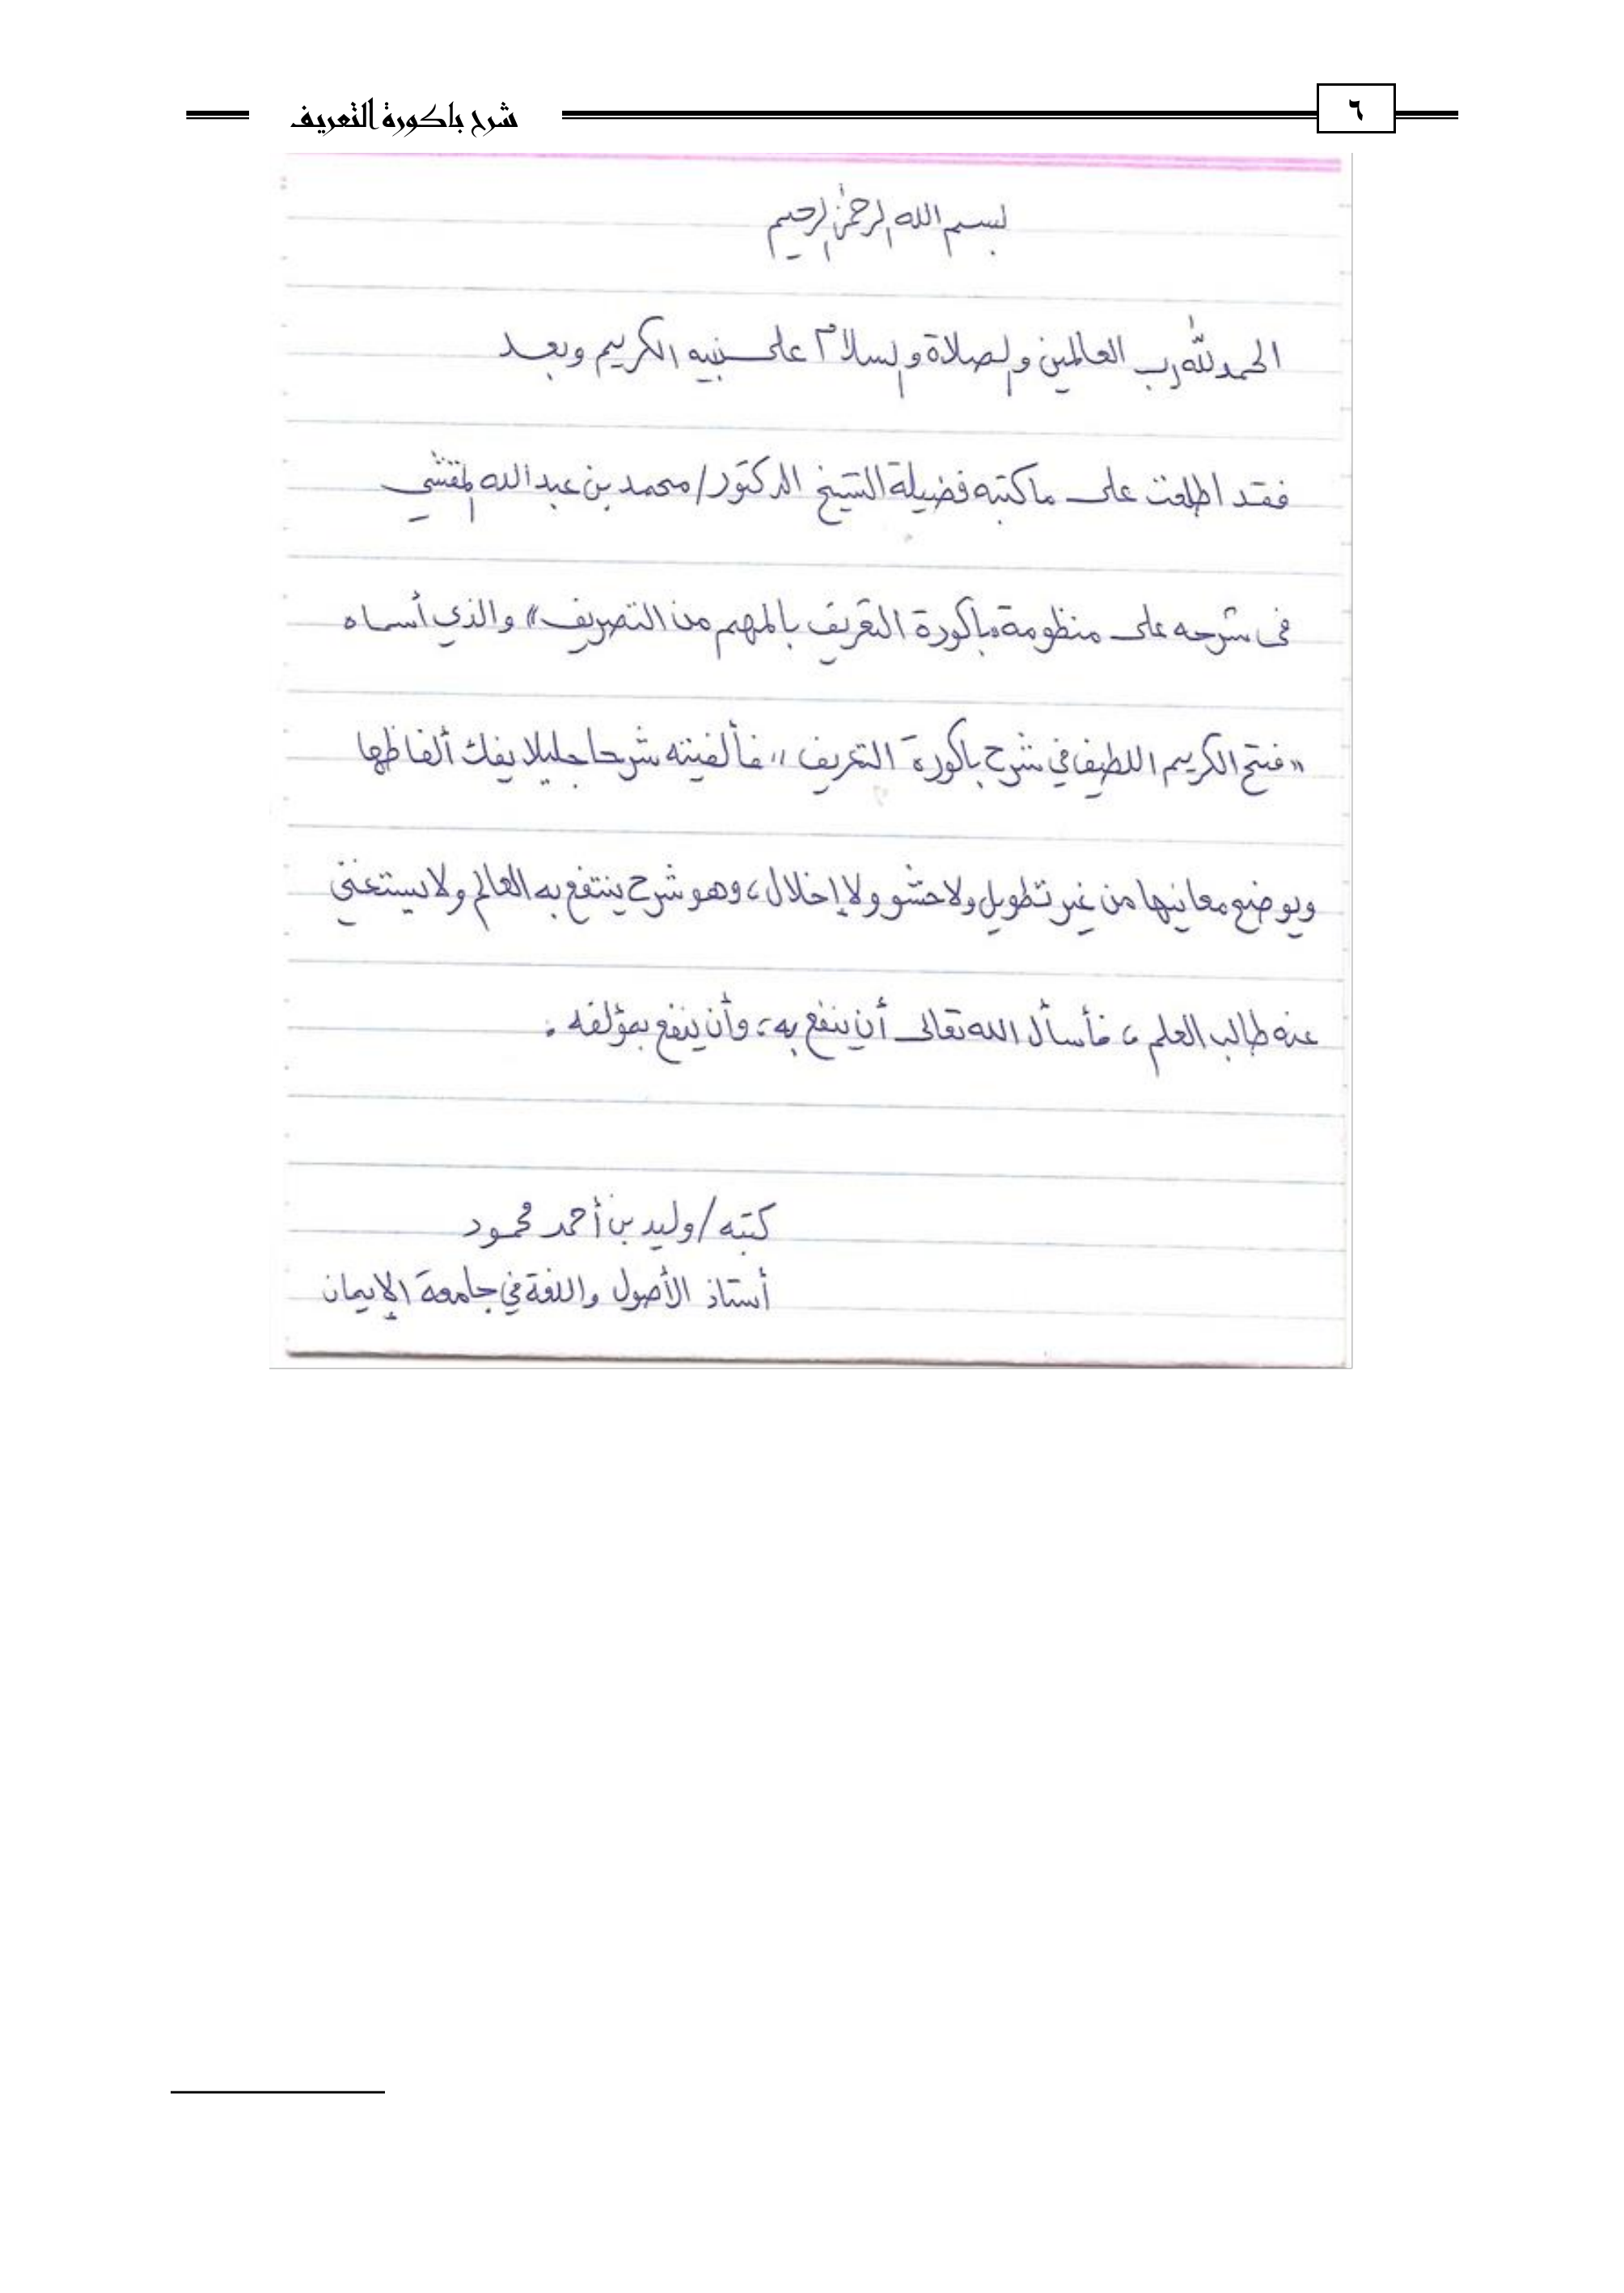 شرح باكورة التعريف ٦
بسم الله الرحمن الرحيم
الحمد لله رب العالمين والصلاة والسلام على نبيه الكريم وبعد
فقد اطلعت على ما كتبه فضيلة الشيخ الدكتور/محمد بن عبدالله المقشي
في شرحه على منظومة «باكورة التعريف بالمهم من التصريف» والذي أسماه
«فتح الكريم اللطيف في شرح باكورة التعريف» فألفيته شرحا جليلا يفك ألفاظها
ويوضح معانيها من غير تطويل ولا حشو ولا إخلال، وهو شرح ينتفع به العالم ولا يستغني
عنه طالب العلم، فأسأل الله تعالى أن ينفع به، وأن ينفع بمؤلفه.
كتبه/وليد بن أحمد محمود
أستاذ الأصول واللغة في جامعة الإيمان